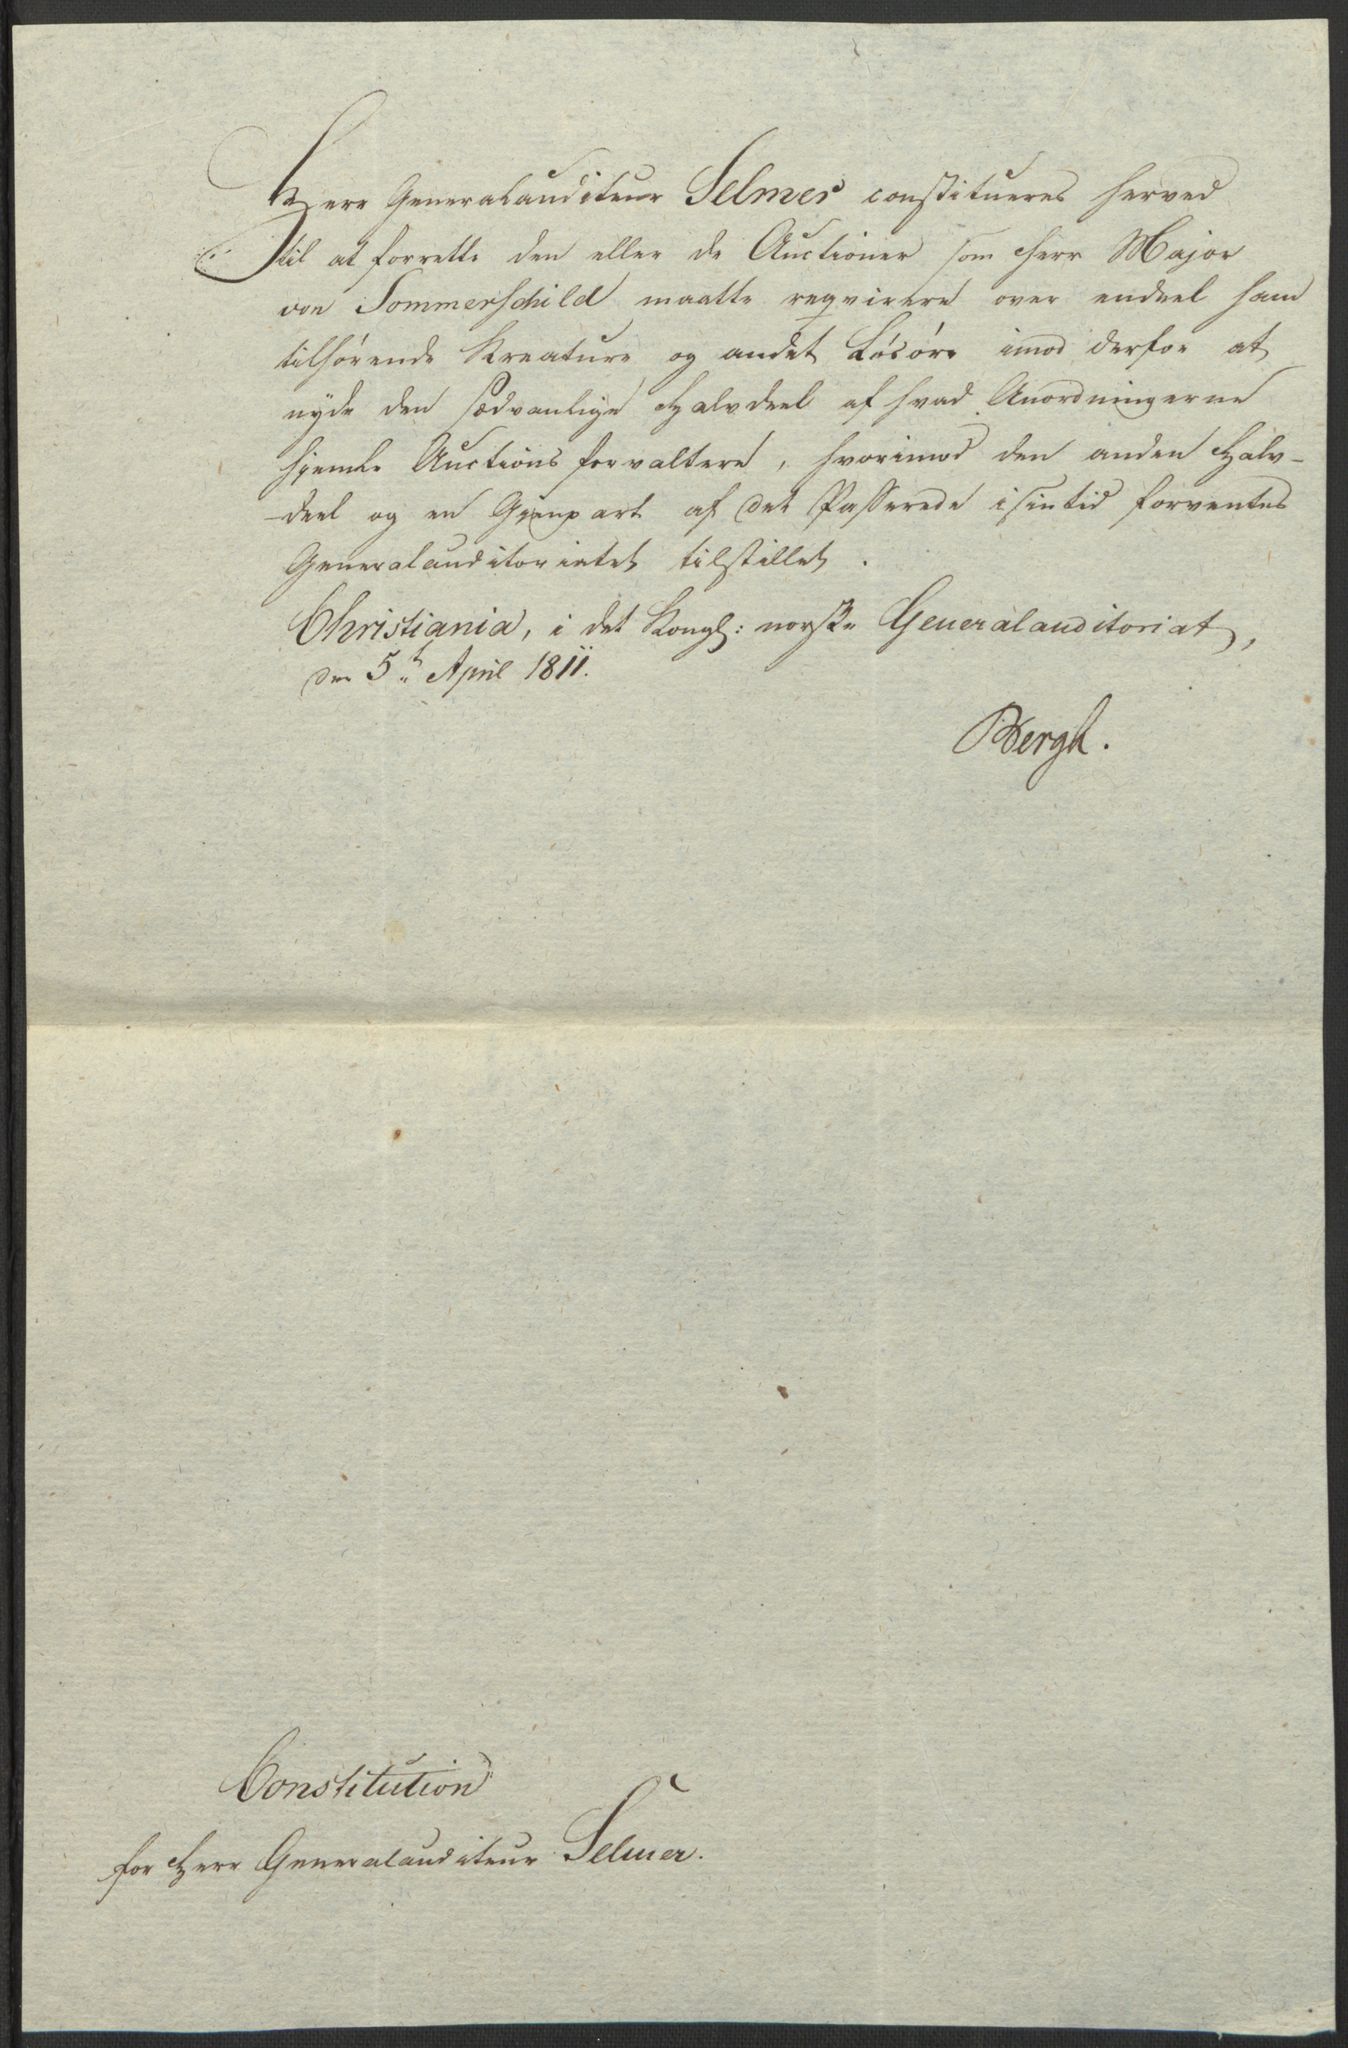 Herr Generalauditeur Selmer constitueres herved
til at forrette den eller de Auctioner som Herr Major
von Sommerschild maatte reqvirere over endeel ham
tilhörende Kreature og andet Lösöre imod derfor at
nyde den sædvanlige Halvdeel af hvad Anordningerne
hjemle Auctionsforvaltere, hvorimod den anden Halv-
-deel og en Gienpart af det Passerede i sin tid forventes
Generalauditoriatet tilstillet.
Christiania, i det Kongl: norske Generalauditoriat,
den 5te April 1811.
Bergh.
Constitution
for Herr Generalauditeur Selmer.